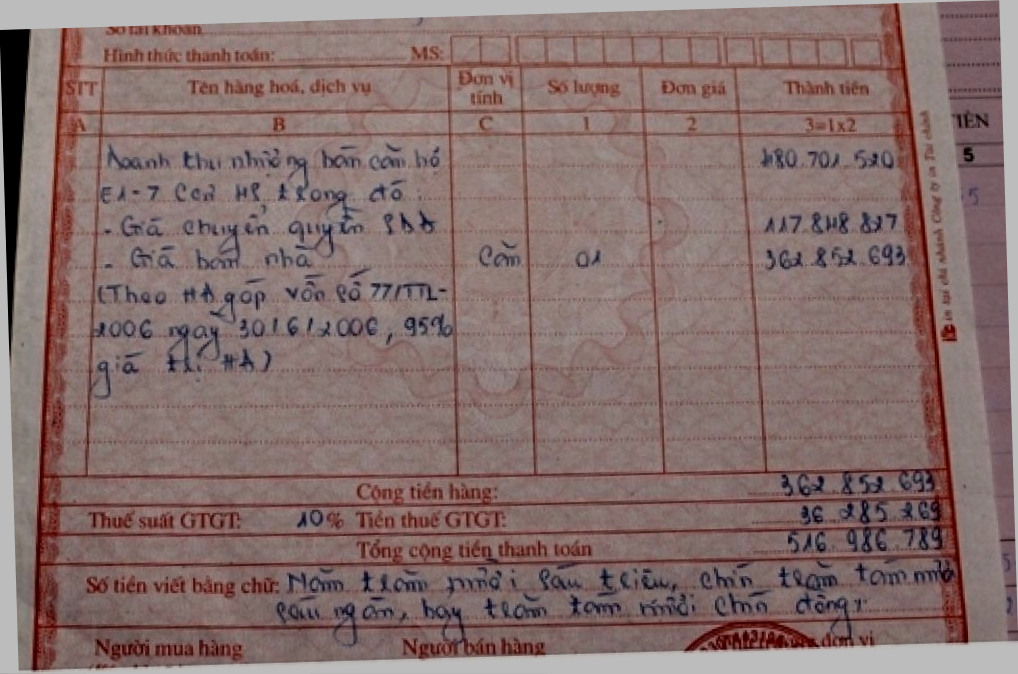 Số tài khoản
Hình thức thanh toán: MS:
STT Tên hàng hoá, dịch vụ Đơn vị tính Số lượng Đơn giá Thành tiền
A B C 1 2 3=1x2
Doanh thu nhượng bán căn hộ 480.701.520
E1-7 CC2 HS trong đó:
- Giá chuyển quyền SDĐ 117.848.827
- Giá bán nhà Căn 01 362.852.693
(Theo HĐ góp vốn số 77/TTL-
2006 ngày 30/6/2006, 95%
giá trị HĐ)
Cộng tiền hàng: 362.852.693
Thuế suất GTGT: 10% Tiền thuế GTGT: 36.285.269
Tổng cộng tiền thanh toán 516.986.789
Số tiền viết bằng chữ: Năm trăm mười sáu triệu, chín trăm tám mươi
sáu ngàn, bảy trăm tám mươi chín đồng
Người mua hàng Người bán hàng đơn vị
in tại chi nhánh Công ty in Tài chính
TIỀN
5